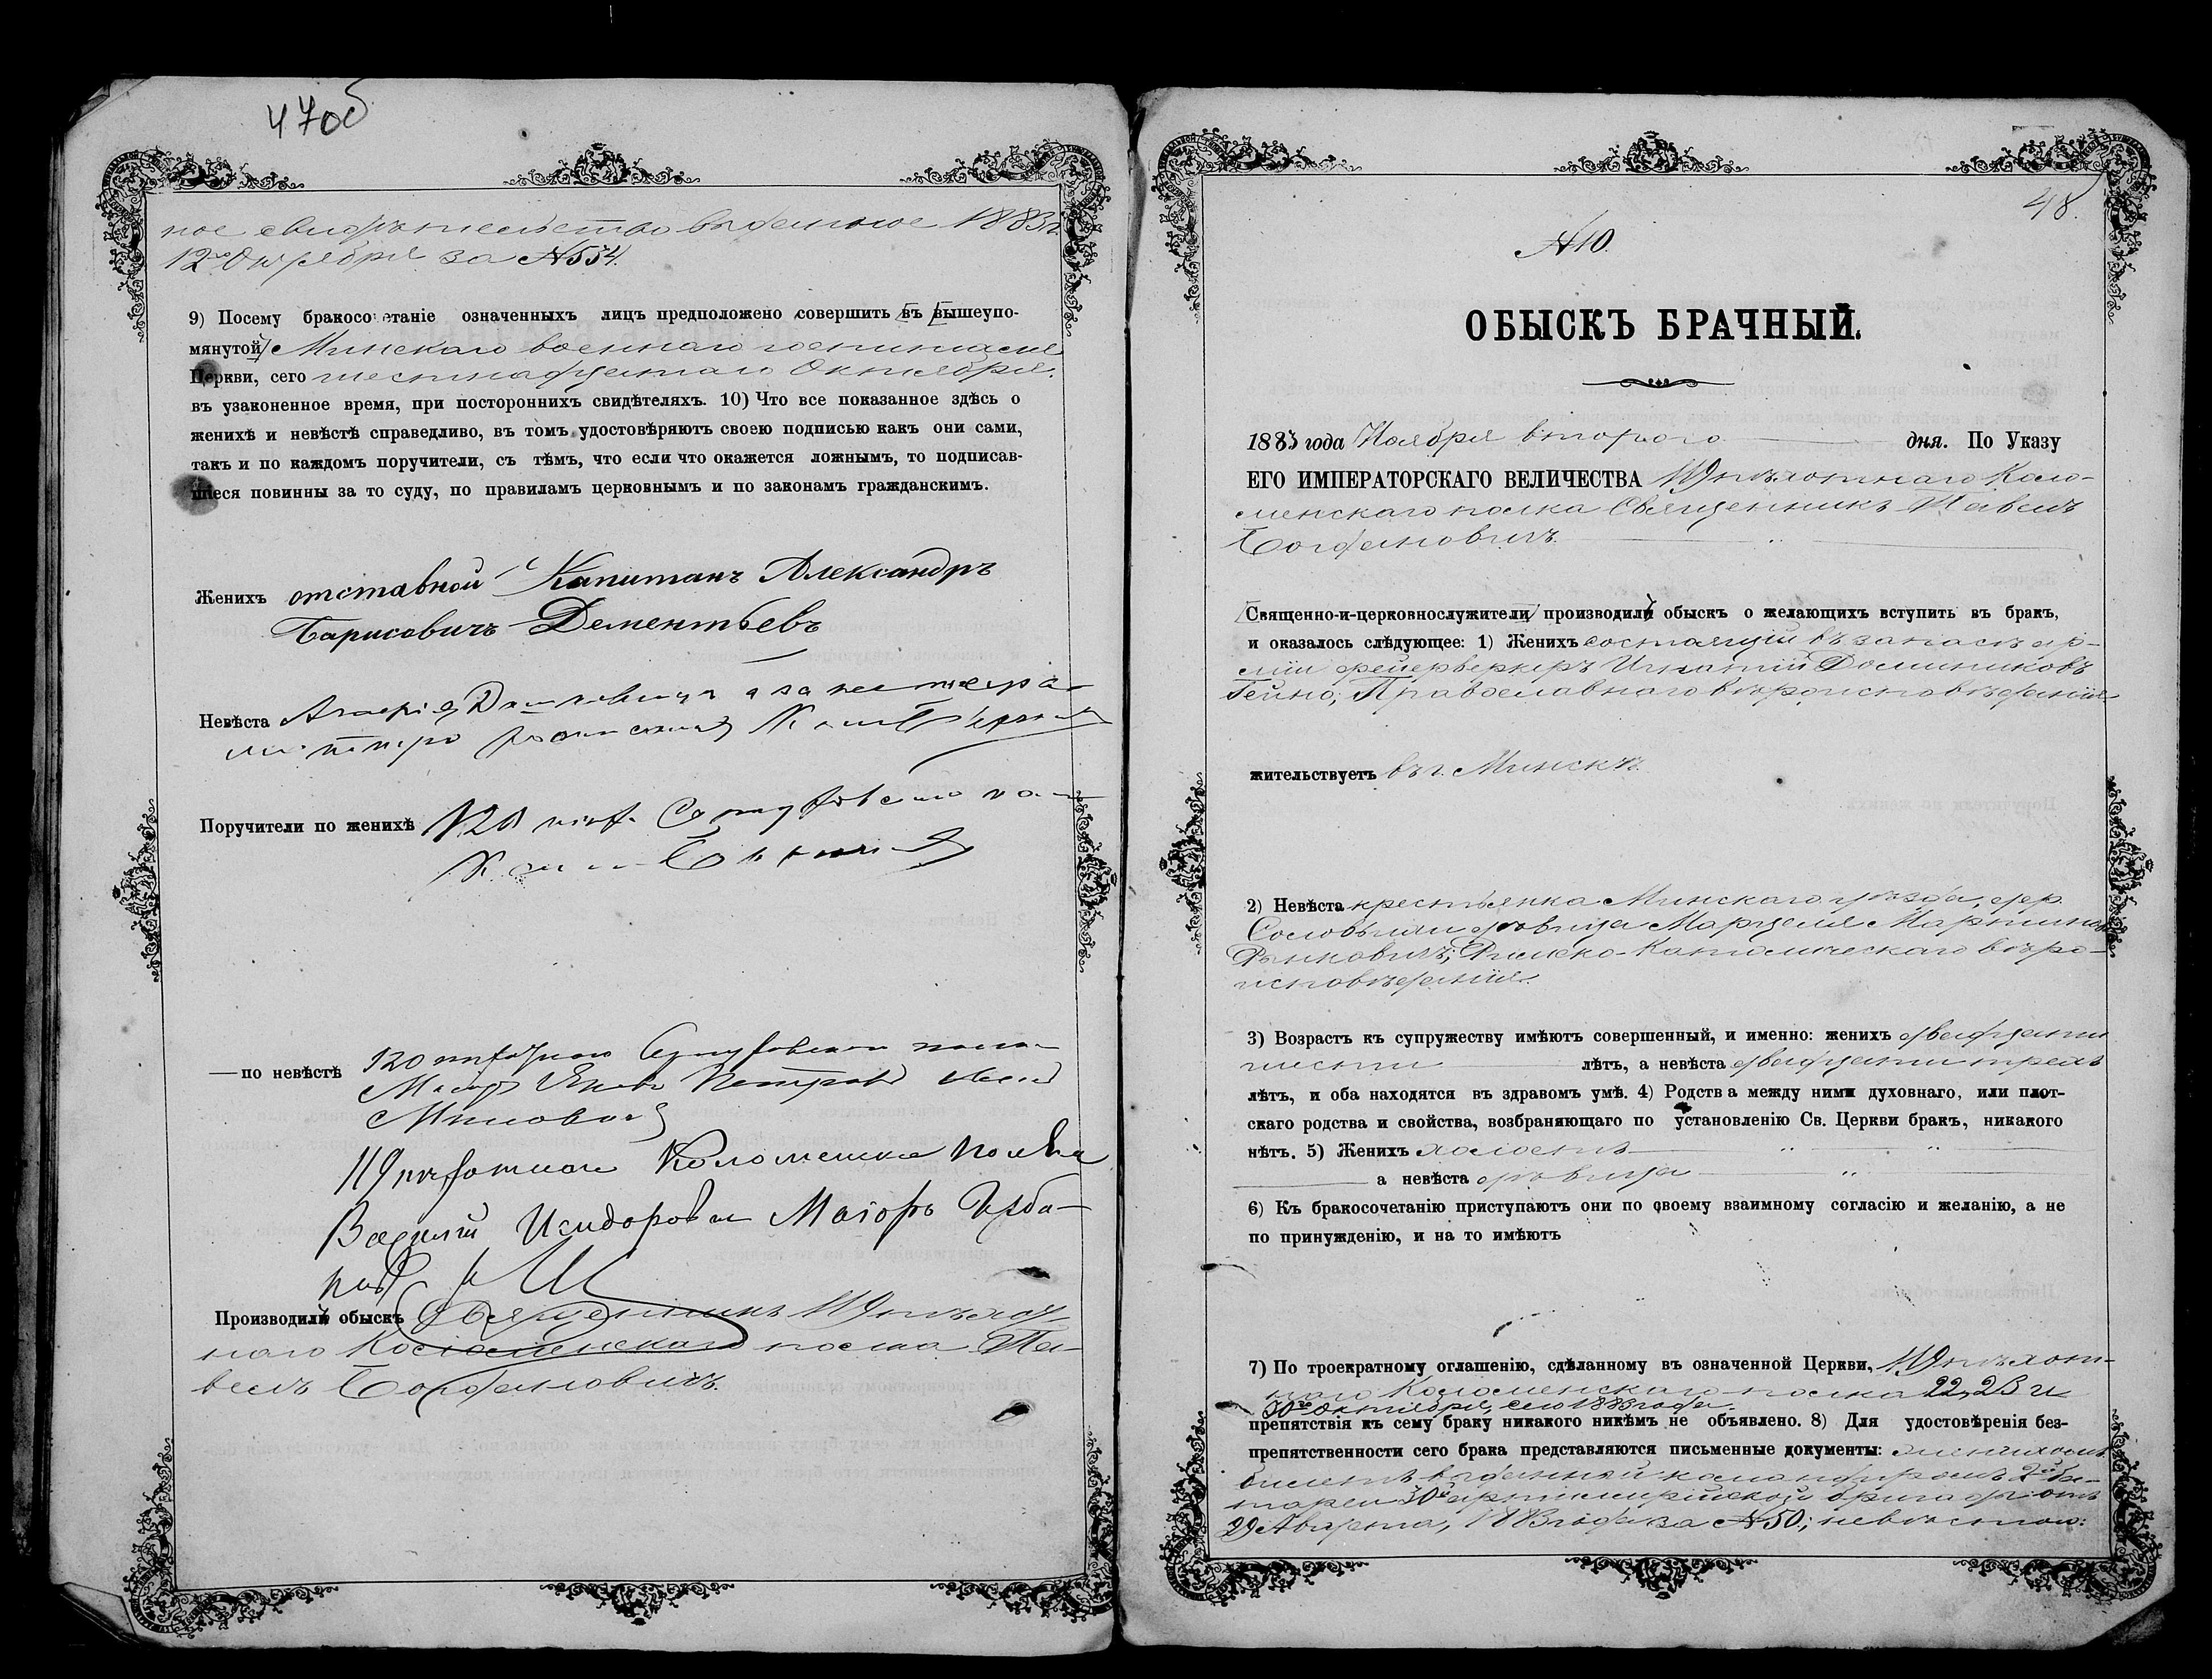 47об
ное свидѣтельство выданное 1883г.
12го Октября за №554.
9) Посему бракосочетаніе означенныхъ лицъ предположено совершить въ вышеупо-
мянутой Минскаго военнаго госпиталя
Церкви, сего шестнадцатаго Октября.
въ узаконенное время, при постороннихъ свидѣтеляхъ. 10) Что все показанное здѣсь о
женихѣ и невѣстѣ справедливо, въ томъ удостовѣряютъ своею подписью какъ они сами,
такъ и по каждомъ поручители, съ тѣмъ, что если что окажется ложнымъ, то подписав-
шіеся повинны за то суду, по правиламъ церковнымъ и по законамъ гражданскимъ.
Женихъ отставной Капитанъ Александръ
Барисовичъ Дементьевъ
Невѣста
Поручители по женихѣ 120 пѣх. Серпуховскаго
— по невѣстѣ 120 пѣхотнаго Серпуховскаго полка
Маіоръ Петровъ
119 пѣхотнаго Коломенскаго полка
Василій Исидоровъ Маіоръ
Производилъ обыскъ Священникъ 119 пѣхот-
наго Коломенскаго полка Па-
велъ Богдановичъ.
48.
№10.
ОБЫСКЪ БРАЧНЫЙ.
1883 года Ноября второго дня. По Указу
ЕГО ИМПЕРАТОРСКАГО ВЕЛИЧЕСТВА 119 пѣхотнаго Коло-
менскаго полка Священникъ Павелъ
Богдановичъ.
Священно-и-церковнослужители производилъ обыскъ о желающихъ вступить въ бракъ,
и оказалось слѣдующее: 1) Женихъ состоящій въ запасѣ ар-
міи фейерверкеръ Игнатій Доминиковъ
Гейно, Православнаго вѣроисповѣданія
жительствуетъ въ г. Минскѣ.
2) Невѣста крестьянка Минскаго уѣзда, дер.
дѣвица Марцеля Мартинова
Римско-Католическаго вѣро-
исповѣданія.
3) Возрастъ къ супружеству имѣютъ совершенный, и именно: женихъ двадцати
шести лѣтъ, а невѣста двадцати трехъ
лѣтъ, и оба находятся въ здравомъ умѣ. 4) Родства между ними духовнаго, или плот-
скаго родства и свойства, возбраняющаго по установленію Св. Церкви бракъ, никакого
нѣтъ. 5) Женихъ холостъ
а невѣста дѣвица
6) Къ бракосочетанію приступаютъ они по своему взаимному согласію и желанію, а не
по принужденію, и на то имѣютъ
7) По троекратному оглашенію, сдѣланному въ означенной Церкви, 119 пѣхот-
наго Коломенскаго полка 22, 23 и
30го Октября, сего 1883 года
препятствія къ сему браку никакого никѣмъ не объявлено. 8) Для удостовѣренія без-
препятственности сего брака представляются письменные документы: женихомъ
билетъ выданный командиромъ 2й ба-
тареи 30й артиллерійской бригады отъ
29 Августа, 1883 года за №50; невѣстою: